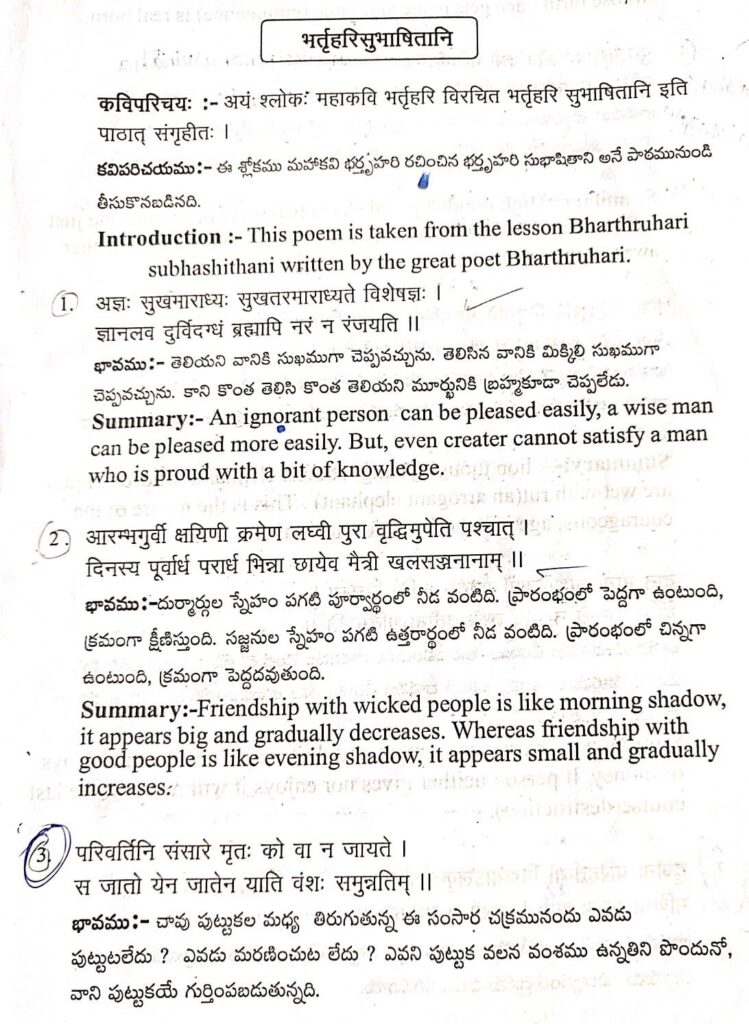 भर्तृहरिसुभाषितानि
कविपरिचयः :- अयं श्लोकः महाकवि भर्तृहरि विरचित भर्तृहरि सुभाषितानि इति
पाठात् संगृहीतः ।
కవిపరిచయము:- ఈ శ్లోకము మహాకవి భర్తృహరి రచించిన భర్తృహరి సుభాషితాని అనే పాఠమునుండి
తీసుకొనబడినది.
Introduction :- This poem is taken from the lesson Bharthruhari
subhashithani written by the great poet Bharthruhari.
1. अज्ञः सुखमाराध्यः सुखतरमाराध्यते विशेषज्ञः ।
ज्ञानलव दुर्विदग्धं ब्रह्मापि नरं न रंजयति ॥
భావము:- తెలియని వానికి సుఖముగా చెప్పవచ్చును. తెలిసిన వానికి మిక్కిలి సుఖముగా
చెప్పవచ్చును. కాని కొంత తెలిసి కొంత తెలియని మూర్ఖునికి బ్రహ్మకూడా చెప్పలేడు.
Summary:- An ignorant person can be pleased easily, a wise man
can be pleased more easily. But, even creater cannot satisfy a man
who is proud with a bit of knowledge.
2. आरम्भगुर्वी क्षयिणी क्रमेण लघ्वी पुरा वृद्धिमुपेति पश्चात् ।
दिनस्य पूर्वार्ध परार्ध भिन्ना छायेव मैत्री खलसज्जनानाम् ॥
భావము:-దుర్మార్గుల స్నేహం పగటి పూర్వార్థంలో నీడ వంటిది. ప్రారంభంలో పెద్దగా ఉంటుంది,
క్రమంగా క్షీణిస్తుంది. సజ్జనుల స్నేహం పగటి ఉత్తరార్థంలో నీడ వంటిది. ప్రారంభంలో చిన్నగా
ఉంటుంది, క్రమంగా పెద్దదవుతుంది.
Summary:-Friendship with wicked people is like morning shadow,
it appears big and gradually decreases. Whereas friendship with
good people is like evening shadow, it appears small and gradually
increases.
3 परिवर्तिनि संसारे मृतः को वा न जायते ।
स जातो येन जातेन याति वंशः समुन्नतिम् ॥
భావము:- చావు పుట్టుకల మధ్య తిరుగుతున్న ఈ సంసార చక్రమునందు ఎవడు
పుట్టుటలేదు ? ఎవడు మరణించుట లేదు ? ఎవని పుట్టుక వలన వంశము ఉన్నతిని పొందునో,
వాని పుట్టుకయే గుర్తింపబడుతున్నది.